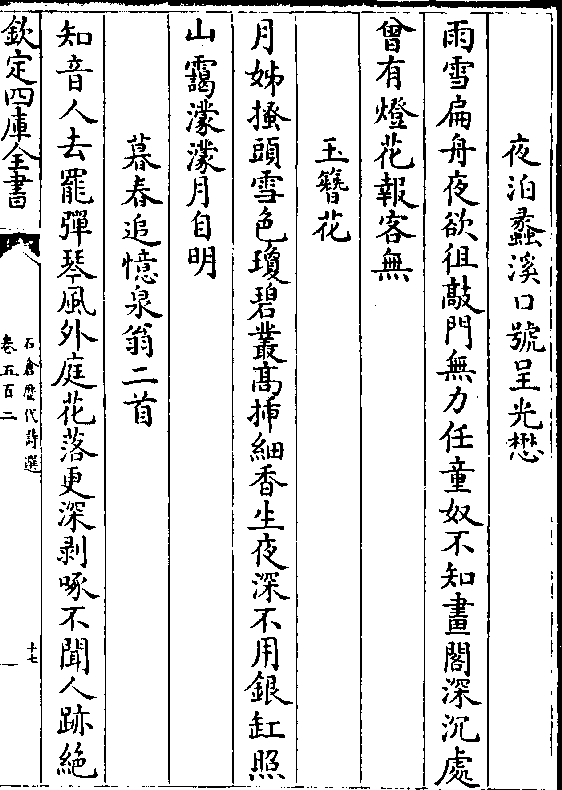 夜泊蠡溪口號呈光懋
雨雪扁舟夜欲徂敲門無力任童奴不知畫閣深沉處
曾有燈花報客無
玉簪花
月姊搔頭雪色瓊碧叢髙揷細香生夜深不用銀缸照
山靄濛濛月自明
暮春追憶泉翁二首
知音人去罷彈琴風外庭花落更深剥啄不聞人跡絶
欽定四庫全書
石倉歴代詩選
卷五百二
十七